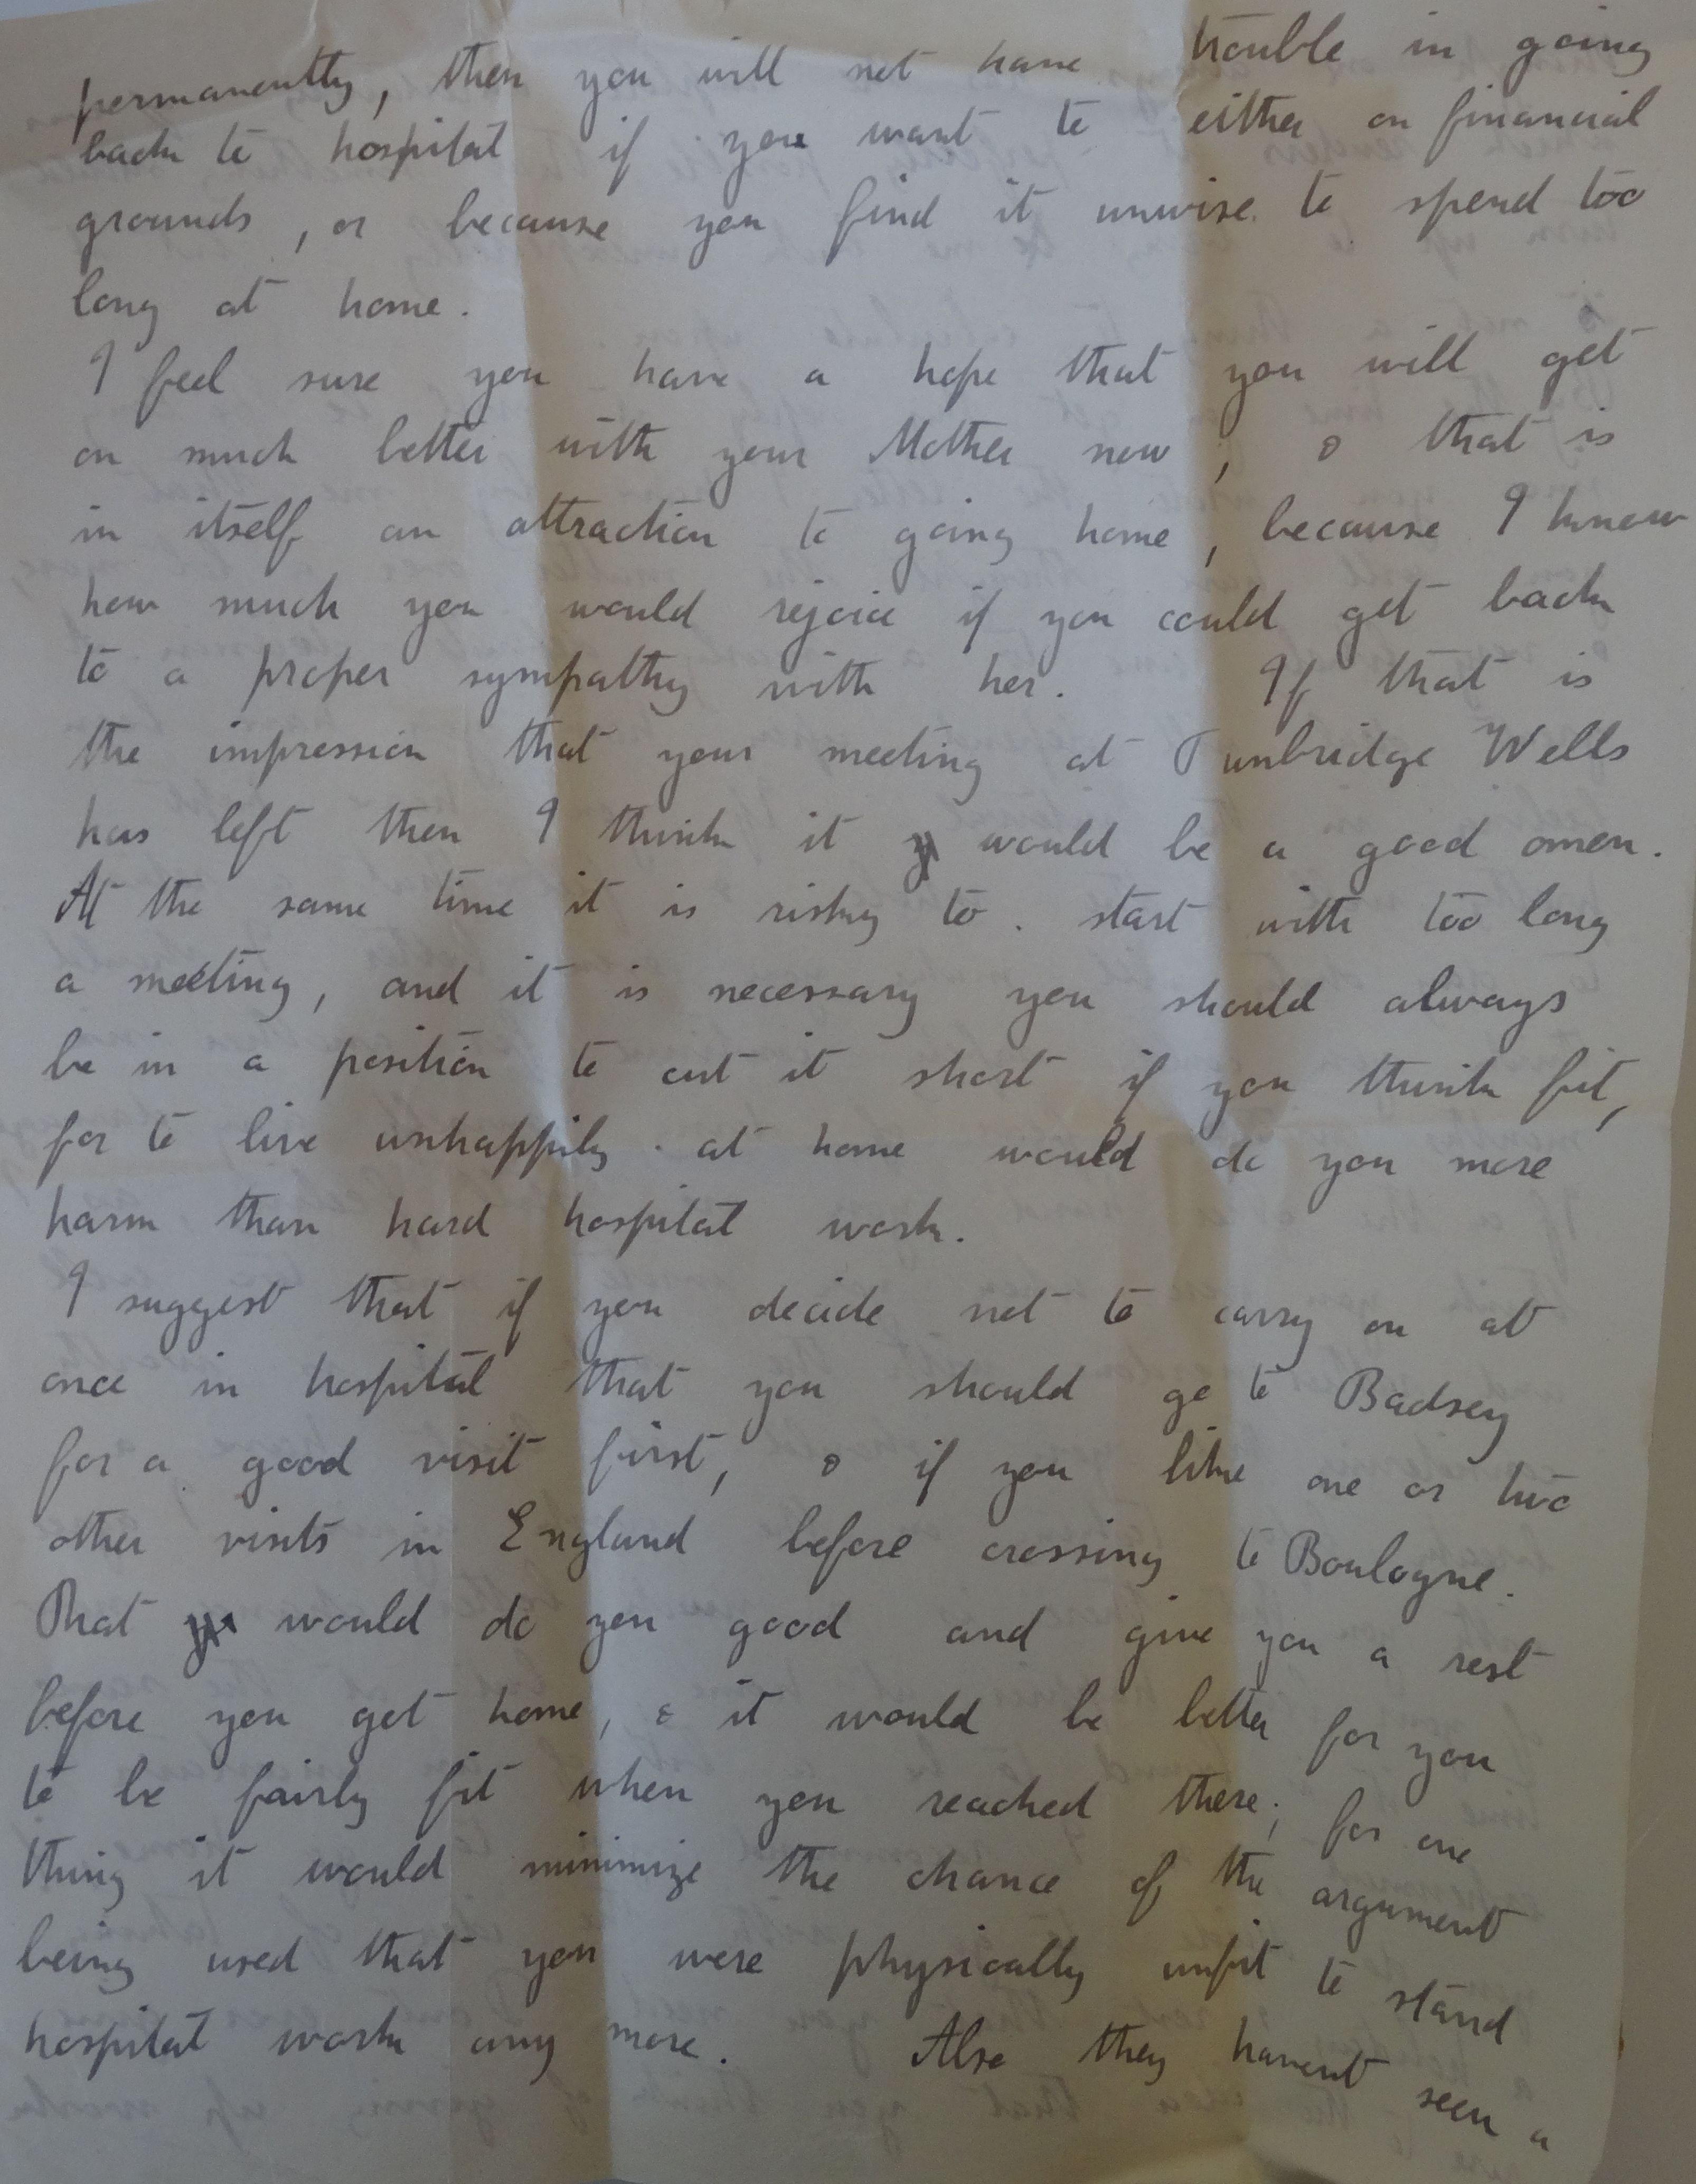 permanently, then you will not have trouble in going
back to hospital if you want to either on financial
grounds, or because you find it unwise to spend too
long at home.
I feel sure you have a hope that you will get
on much better with your Mother now; & that is
in itself an attraction to going home, because I know
how much you would rejoice if you could get back
to a proper sympathy with her. If that is
the impression that your meeting at Tunbridge Wells
has left then I think it would be a good omen.
At the same time it is risky to start with too long
a meeting, and it is necessary you should always
be in a position to cut it short if you think fit,
for to live unhappily at home would do you more
harm than hard hospital work.
I suggest that if you decide not to carry on at
once in hospital that you should go to Badsey
for a good visit first, & if you like one or two
other visits in England before crossing to Boulogne.
That would do you good and give you a rest
before you get home, & it would be better for you
to be fairly fit when you reached there; for one
thing it would minimize the chance of the argument
being used that you were physically unfit to stand
hospital work any more. Also they havent seen a